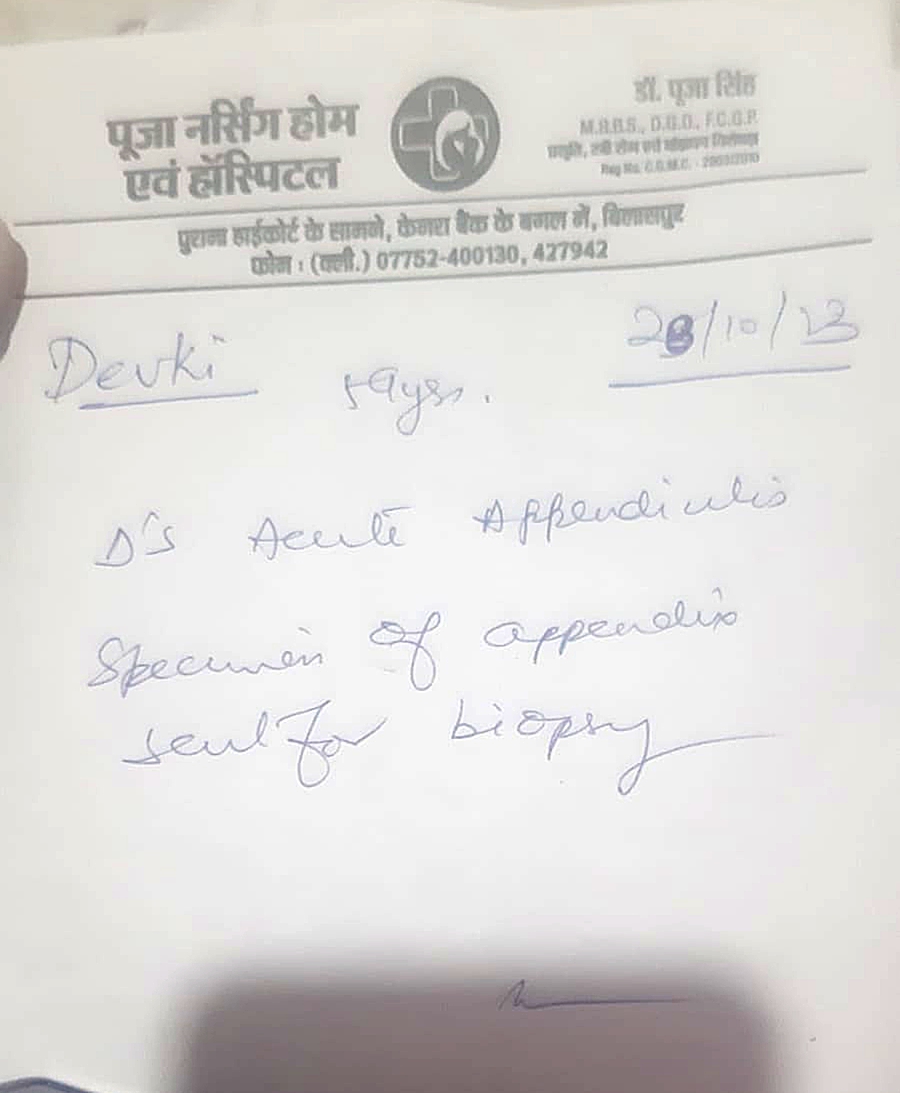 पूजा नर्सिंग होम
एवं हॉस्पिटल
डॉ. पूजा सिंह
M.B.B.S., D.G.O., F.C.G.P.
प्रसूति, स्त्री रोग एवं
Reg No. C.G.M.C. -
पुराना हाईकोर्ट के सामने, केनरा बैंक के बगल में, बिलासपुर
फोन : (क्ली.) 07752-400130, 427942
Devki
59yrs.
28/10/23
D's Acute Appendicitis
Specimen of appendix
sent for biopsy